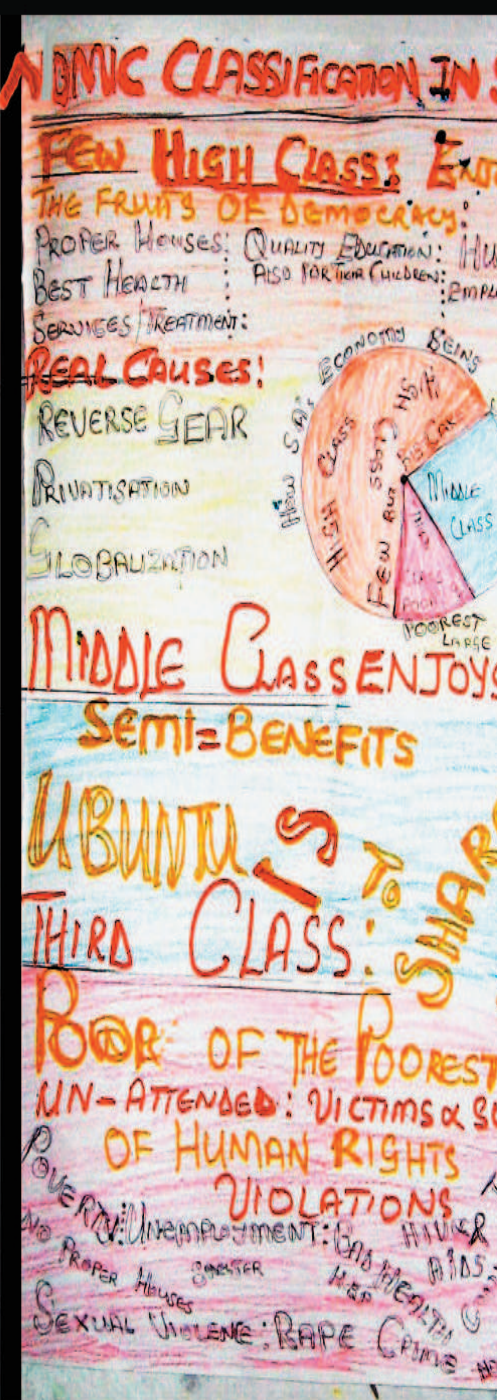 NOMIC CLASSIFICATION IN S
FEW HIGH CLASS: ENJO
THE FRUITS OF DEMOCRACY:
PROPER HOUSES: QUALITY EDUCATION: HU
BEST HEALTH : ALSO FOR THEIR CHILDREN: EMPL
SERVICES/TREATMENT:
REAL CAUSES:
REVERSE GEAR
PRIVATISATION
GLOBALIZATION
HOW S.A'S ECONOMY BEING
HIGH CLASS
HIGH CLASS
FEW BUT BIG CAK
MIDDLE
CLASS
THIRD
CLASS
POOREST
LARGE
MIDDLE CLASS ENJOYS
SEMI=BENEFITS
UBUNTU IS TO SHAR
THIRD CLASS:
POOR OF THE POOREST
UN-ATTENDED: VICTIMS & SU
OF HUMAN RIGHTS
VIOLATIONS
POVERTY: UNEMPLOYMENT: BAD HEALTH
HIV &
AIDS:
NO PROPER HOUSES
SHELTER
SEXUAL VIOLENE: RAPE CRIME